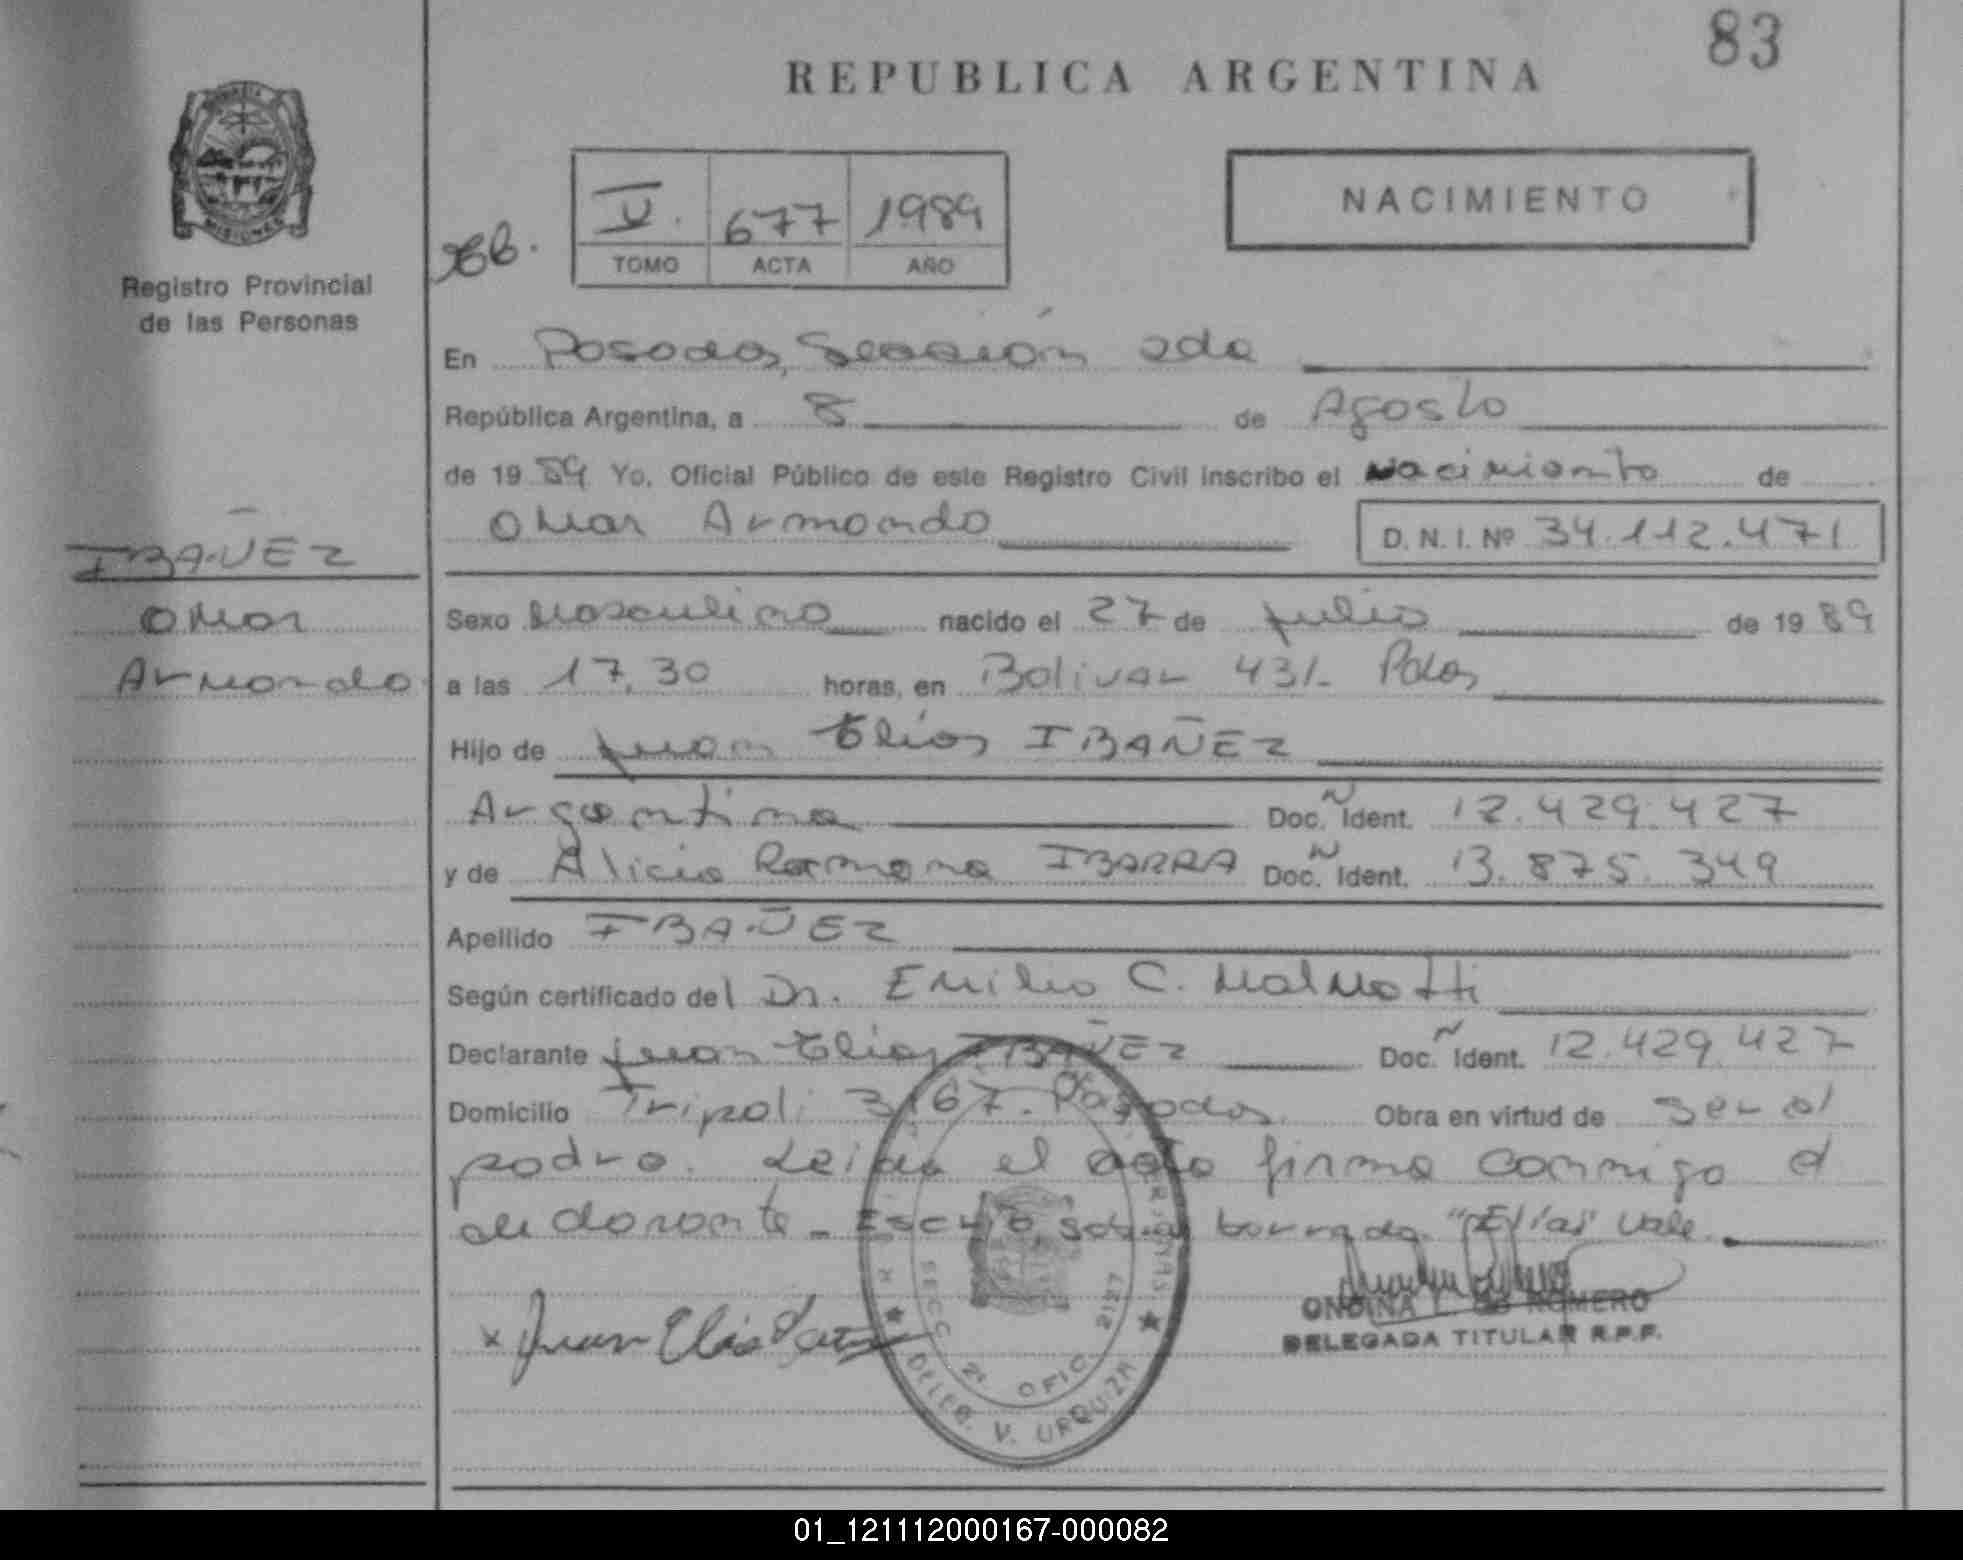 83
REPUBLICA ARGENTINA
MISIONES
Registro Provincial
de las Personas
V. 677 1989
TOMO ACTA AÑO
NACIMIENTO
En Posadas, Sección 2da
República Argentina, a 8 de Agosto
de 1989 Yo, Oficial Público de este Registro Civil inscribo el Nacimiento de
Omar Armando D.N.I. Nº 34.112.471
IBAÑEZ
Omar
Armando
Sexo Masculino nacido el 27 de julio de 1989
a las 17,30 horas, en Bolivar 431- Pdas
Hijo de Juan Elías IBAÑEZ
Argentina Doc. Ñ Ident. 12.429.427
y de Alicia Ramona IBARRA Doc. Ñ Ident. 13.875.349
Apellido IBAÑEZ
Según certificado del Dr. Emilio C. Malmotti
Declarante Juan Elías IBAÑEZ Doc. Ñ Ident. 12.429.427
Domicilio Tripoli 3167. Posadas Obra en virtud de ser el
padre. Leida el acta firma conmigo el
declarante_ Escrito sobre borrado "Elías" Vale.
x Juan Elias
ONDINA ROMERO
DELEGADA TITULAR R.P.P.
SECC. 2ª OFIC. 2127
DELEG. V. URQUIZA
01_121112000167-000082